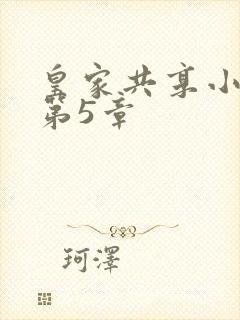 皇家共享小
第5章
珂澤